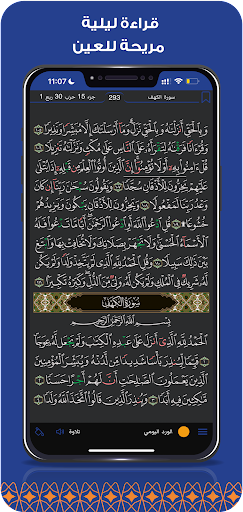 قراءة ليلية
مريحة للعين
11:07
سورة الكهف
293
جزء 15 حزب 30 ربع 1
وَبِالْحَقِّ أَنزَلْنَاهُ وَبِالْحَقِّ نَزَلَ وَمَا أَرْسَلْنَاكَ إِلَّا مُبَشِّرًا وَنَذِيرًا
وَقُرْآنًا فَرَقْنَاهُ لِتَقْرَأَهُ عَلَى النَّاسِ عَلَى مُكْثٍ وَنَزَّلْنَاهُ تَنزِيلًا
قُلْ آمِنُوا بِهِ أَوْ لَا تُؤْمِنُوا إِنَّ الَّذِينَ أُوتُوا الْعِلْمَ مِن قَبْلِهِ إِذَا يُتْلَى
عَلَيْهِمْ يَخِرُّونَ لِلْأَذْقَانِ سُجَّدًا وَيَقُولُونَ سُبْحَانَ رَبِّنَا إِن كَانَ
وَعْدُ رَبِّنَا لَمَفْعُولًا وَيَخِرُّونَ لِلْأَذْقَانِ يَبْكُونَ وَيَزِيدُهُمْ
خُشُوعًا قُلِ ادْعُوا اللَّهَ أَوِ ادْعُوا الرَّحْمَنَ أَيًّا مَّا تَدْعُوا فَلَهُ
الْأَسْمَاءُ الْحُسْنَى وَلَا تَجْهَرْ بِصَلَاتِكَ وَلَا تُخَافِتْ بِهَا وَابْتَغِ
بَيْنَ ذَلِكَ سَبِيلًا وَقُلِ الْحَمْدُ لِلَّهِ الَّذِي لَمْ يَتَّخِذْ وَلَدًا وَلَمْ يَكُن
لَّهُ شَرِيكٌ فِي الْمُلْكِ وَلَمْ يَكُن لَّهُ وَلِيٌّ مِّنَ الذُّلِّ وَكَبِّرْهُ تَكْبِيرًا
سُورَةُ الكَهْفِ
بِسْمِ اللَّهِ الرَّحْمَنِ الرَّحِيمِ
الْحَمْدُ لِلَّهِ الَّذِي أَنزَلَ عَلَى عَبْدِهِ الْكِتَابَ وَلَمْ يَجْعَل لَّهُ عِوَجَا
قَيِّمًا لِّيُنذِرَ بَأْسًا شَدِيدًا مِّن لَّدُنْهُ وَيُبَشِّرَ الْمُؤْمِنِينَ
الَّذِينَ يَعْمَلُونَ الصَّالِحَاتِ أَنَّ لَهُمْ أَجْرًا حَسَنًا
مَّاكِثِينَ فِيهِ أَبَدًا وَيُنذِرَ الَّذِينَ قَالُوا اتَّخَذَ اللَّهُ وَلَدًا
الورد اليومي
تلاوة